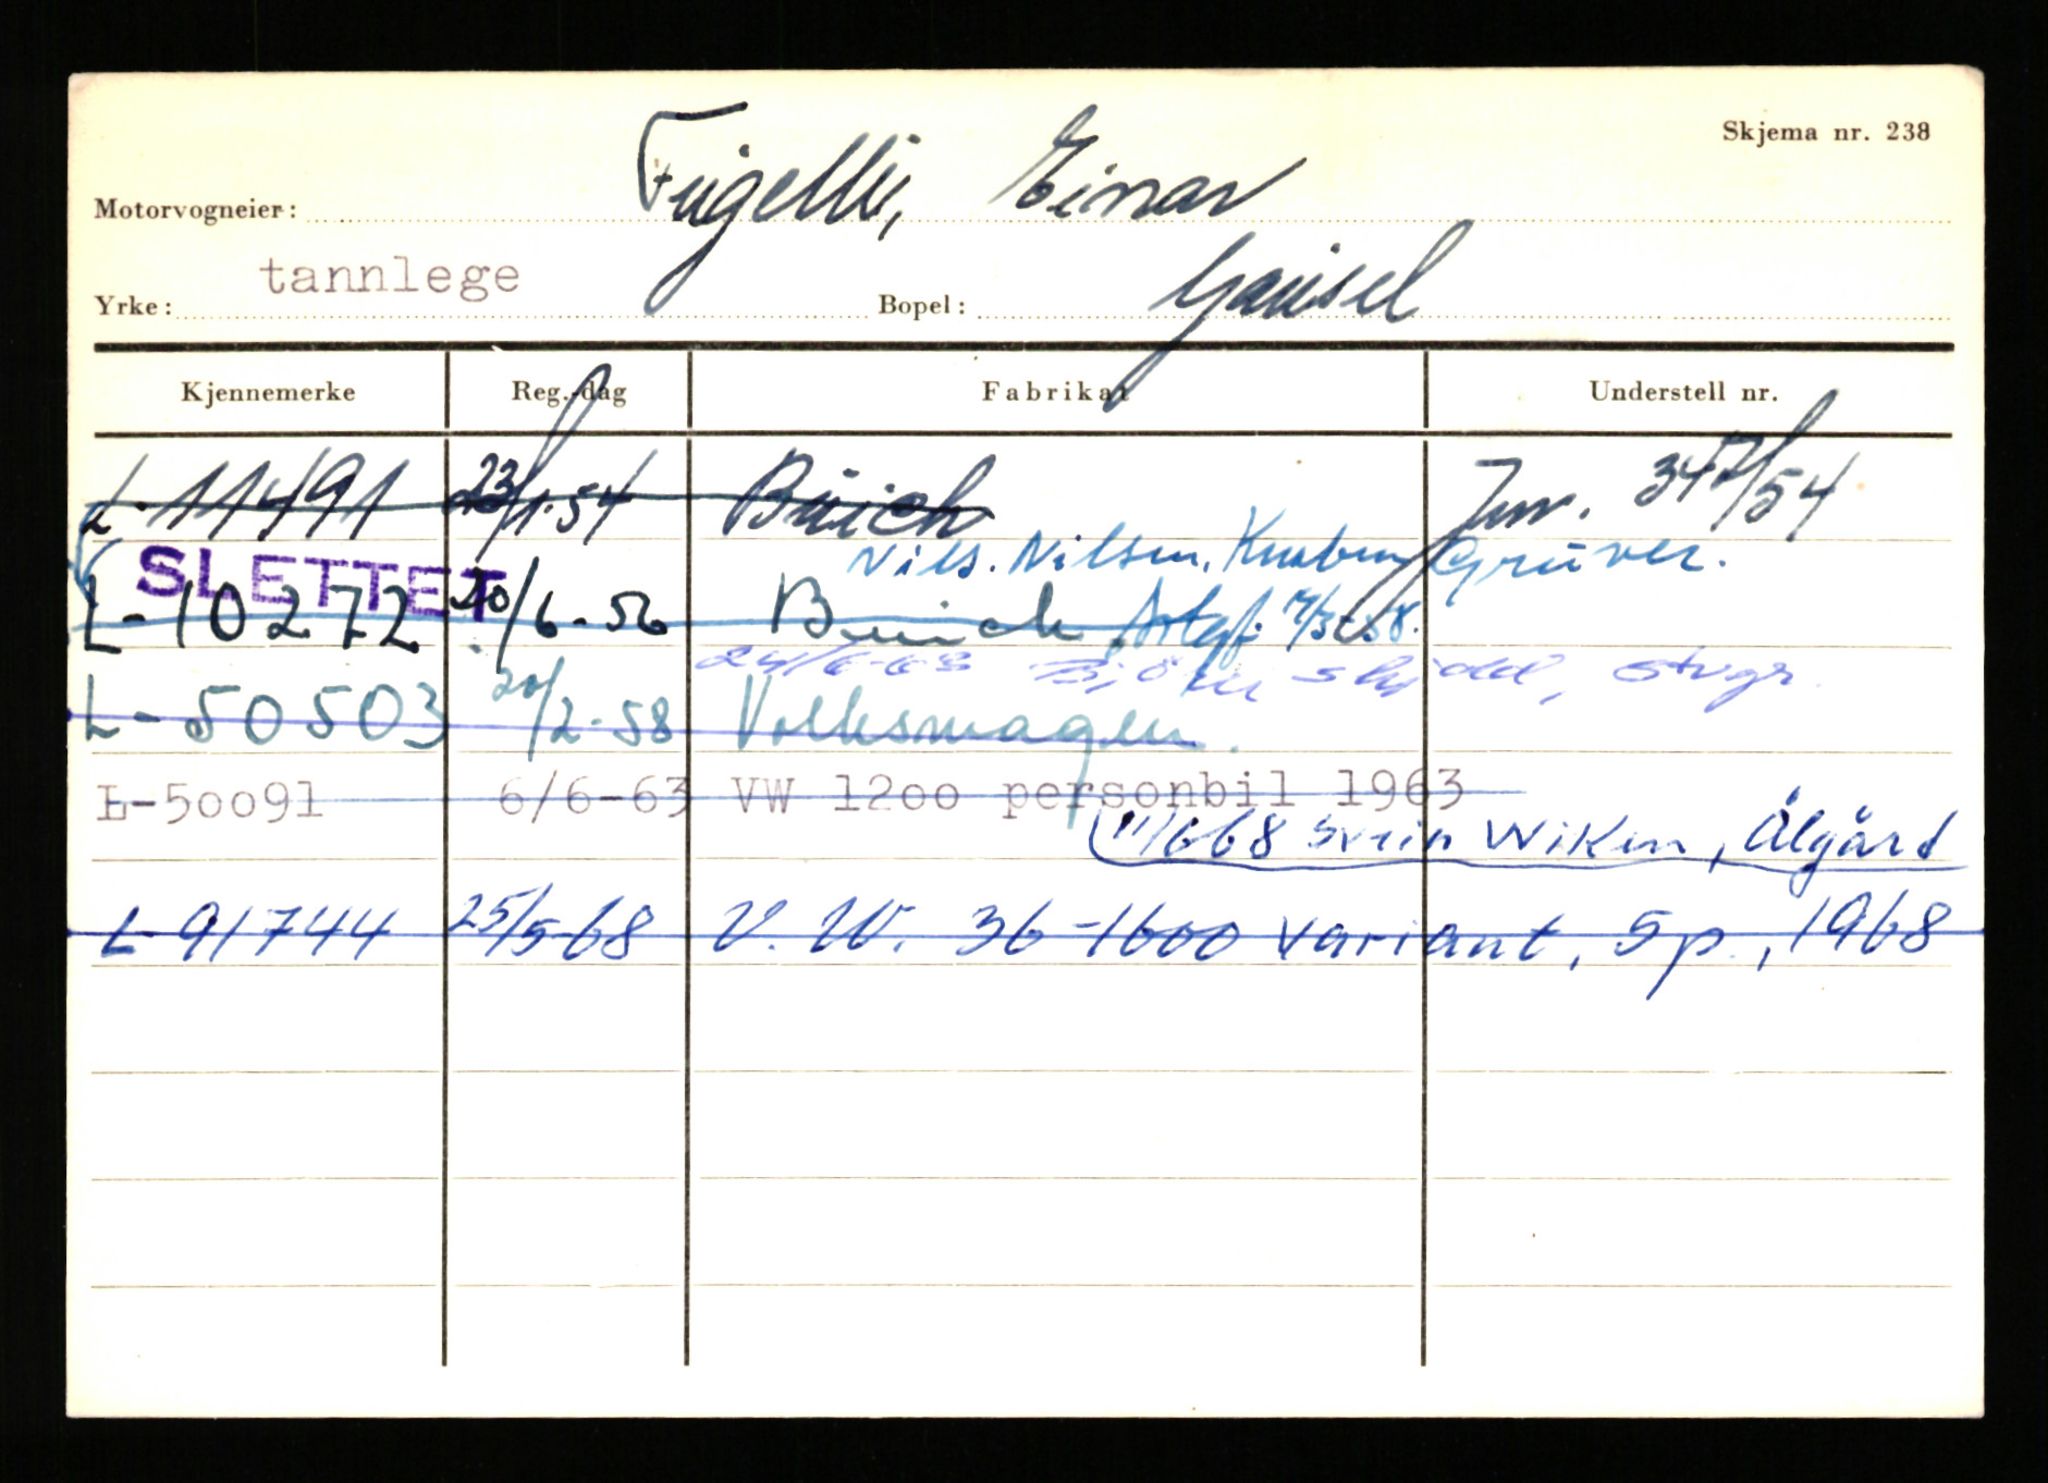 Skjema nr. 238
Motorvogneier: Fugelli, Einar
Yrke: tannlege Bopel: Gausel
Kjennemerke Reg.-dag Fabrikat Understell nr.
L-11491 23/1-54 Buick Inv. 347/54
Nils. Nilsen, Knaben Gruver.
SLETTET
L-10272 20/6-56 Buick 7/3-58.
24/6-63 Svgr
L-50503 20/2-58 Volkswagen.
L-50091 6/6-63 VW 1200 personbil 1963
11/6 68 Svein Wiken, Ålgård
L-91744 25/5-68 V.W. 36-1600 Variant, 5p., 1968